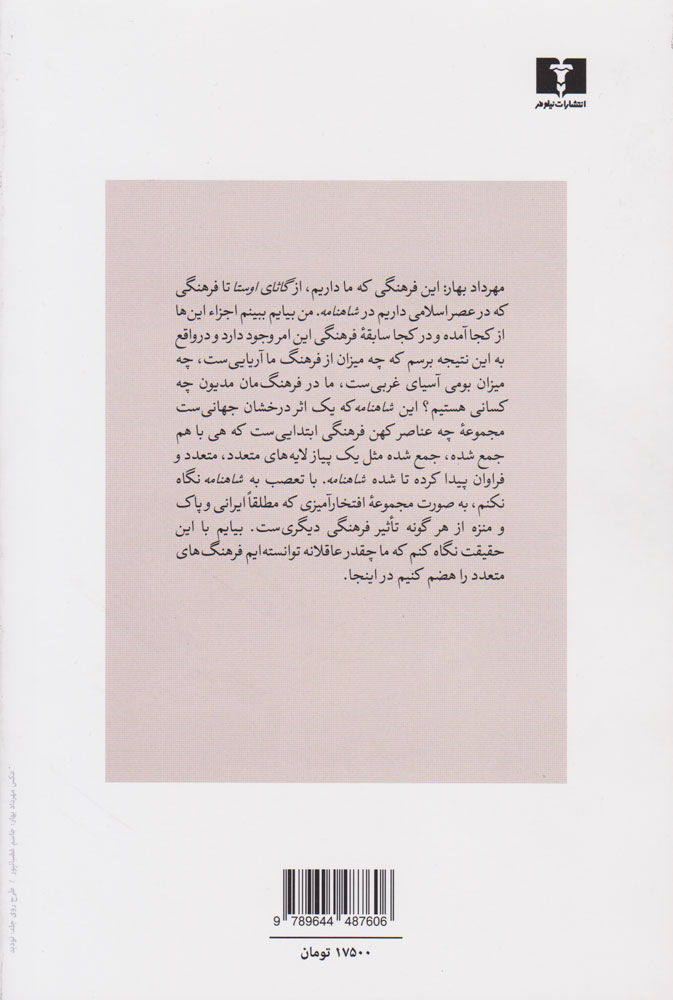 انتشارات نیلوفر
مهرداد بهار: این فرهنگی که ما داریم، از گاثای اوستا تا فرهنگی
که در عصر اسلامی داریم در شاهنامه. من بیایم ببینم اجزاء این‌ها
از کجا آمده و در کجا سابقهٔ فرهنگی این امر وجود دارد و درواقع
به این نتیجه برسم که چه میزان از فرهنگ ما آریایی‌ست، چه
میزان بومی آسیای غربی‌ست، ما در فرهنگ‌مان مدیون چه
کسانی هستیم؟ این شاهنامه که یک اثر درخشان جهانی‌ست
مجموعهٔ چه عناصر کهن فرهنگی ابتدایی‌ست که هی با هم
جمع شده، جمع شده مثل یک پیاز لایه‌های متعدد، متعدد و
فراوان پیدا کرده تا شده شاهنامه. با تعصب به شاهنامه نگاه
نکنم، به صورت مجموعهٔ افتخارآمیزی که مطلقاً ایرانی و پاک
و منزه از هر گونه تأثیر فرهنگی دیگری‌ست. بیایم با این
حقیقت نگاه کنم که ما چقدر عاقلانه توانسته‌ایم فرهنگ‌های
متعدد را هضم کنیم در اینجا.
عکس مهرداد بهار: جاسم غضبانپور / طرح روی جلد:
9 789644 487606
۱۷۵۰۰ تومان